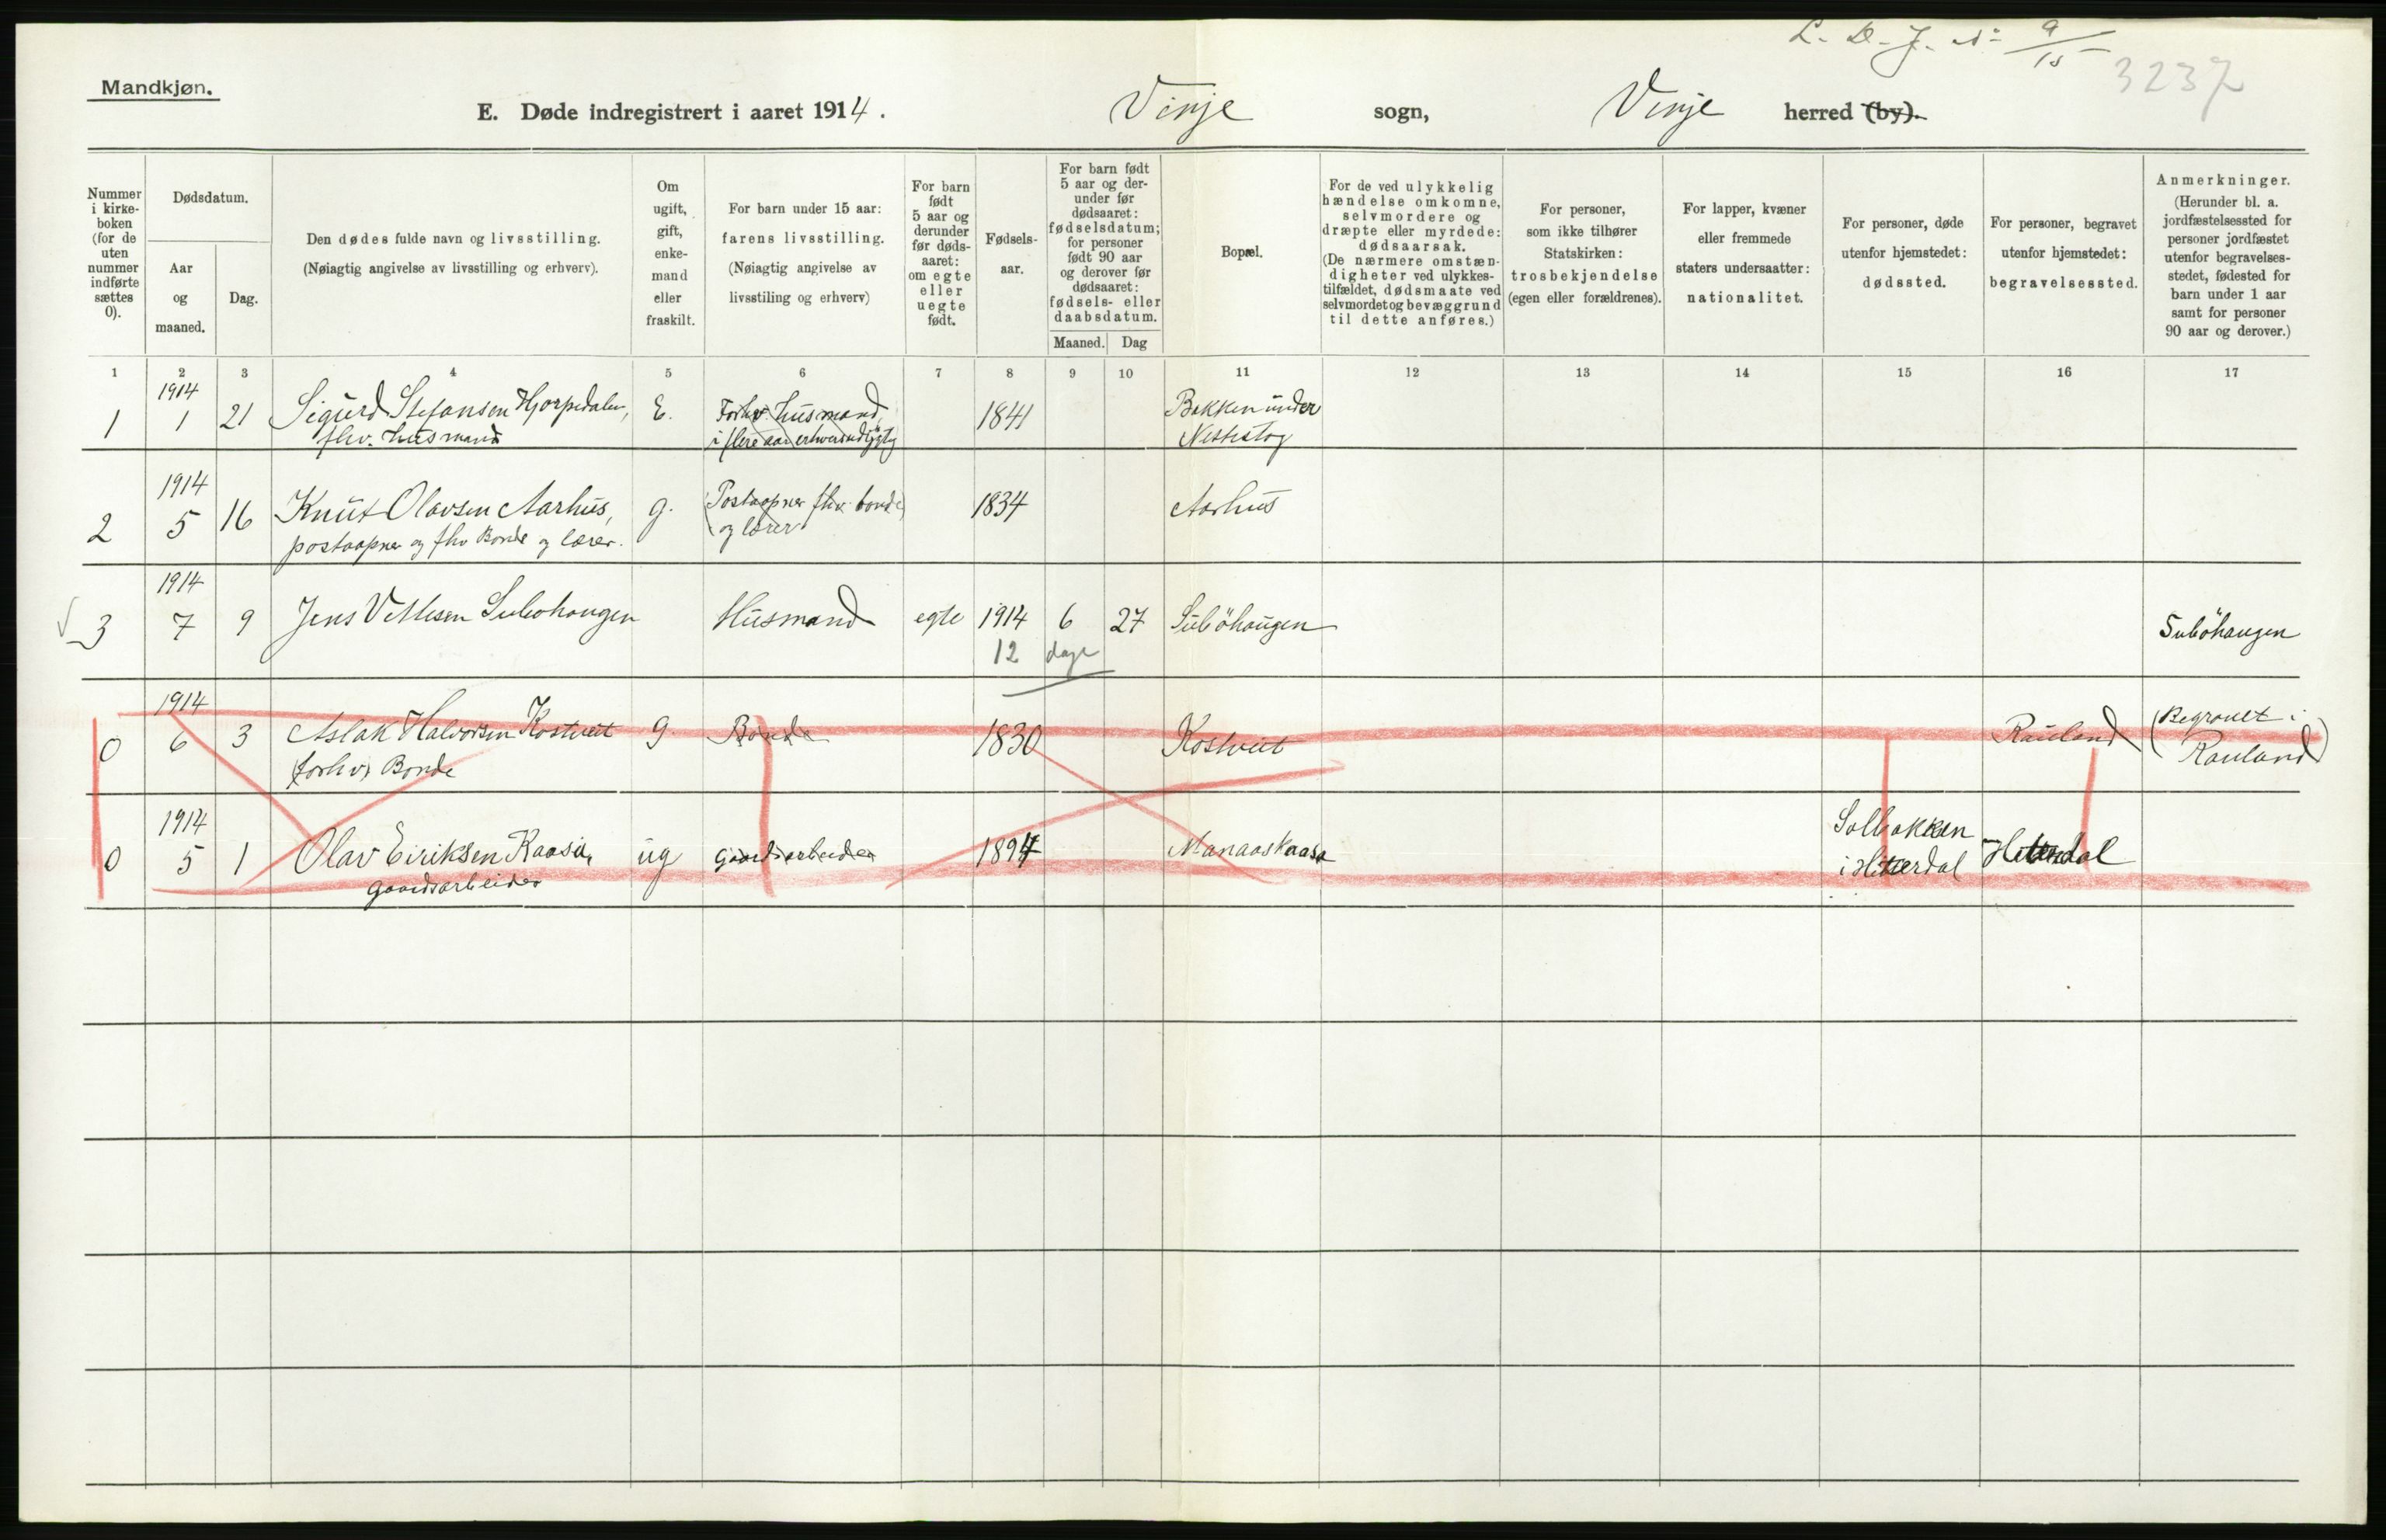 L. D. J. No 9/15
3237
Mandkjøn.
E. Døde indregistrert i aaret 1914. Vinje sogn, Vinje herred (by).
Nummer i kirke-boken (for de uten nummer indførte sættes 0).
Dødsdatum.
Aar og maaned.
Dag.
Den dødes fulde navn og livsstilling.
(Nøiagtig angivelse av livsstilling og erhverv).
Om ugift, gift, enke-mand eller fraskilt.
For barn under 15 aar:
farens livsstilling.
(Nøiagtig angivelse av
livsstiling og erhverv)
For barn født 5 aar og derunder før døds-aaret: om egte eller uegte født.
Fødsels-aar.
For barn født 5 aar og der-under før dødsaaret: fødselsdatum; for personer født 90 aar og derover før dødsaaret: fødsels- eller daabsdatum.
Maaned. Dag
Bopæl.
For de ved ulykkelig hændelse omkomne, selvmordere og dræpte eller myrdede: dødsaarsak. (De nærmere omstæn-digheter ved ulykkes-tilfældet, dødsmaate ved selvmordet og bevæggrund til dette anføres.)
For personer, som ikke tilhører Statskirken: trosbekjendelse (egen eller forældrenes).
For lapper, kvæner eller fremmede staters undersaatter: nationalitet.
For personer, døde utenfor hjemstedet: dødssted.
For personer, begravet utenfor hjemstedet: begravelsessted.
Anmerkninger.
(Herunder bl. a. jordfæstelsessted for personer jordfæstet utenfor begravelses-stedet, fødested for barn under 1 aar samt for personer 90 aar og derover.)
1 2 3 4 5 6 7 8 9 10 11 12 13 14 15 16 17
1914
1 1 21 Sigurd Stefansen Hjorpedalen, E. Forhv. husmand, 1841 Bakken under
fhv. husmand i flere aar Nestestog
1914
2 5 16 Knut Olavsen Aarhus, g. (Postaapner fhv. bonde) 1834 Aarhus
postaapner og fhv Bonde og lærer. og lærer
1914
3 7 9 Jens Vetlesen Subøhaugen Husmand egte 1914 6 27 Subøhaugen Subøhaugen
12 dage
1914
0 6 3 Aslak Halvorsen Kostveit g. Bonde 1830 Kostveit Rauland (Begravet i
(forhv) Bonde Rauland)
1914
0 5 1 Olav Eiriksen Kaasa, ug gaardsarbeider 1894 Manaaskaasa Solbakken i Hitterdal Hitterdal
gaardsarbeider